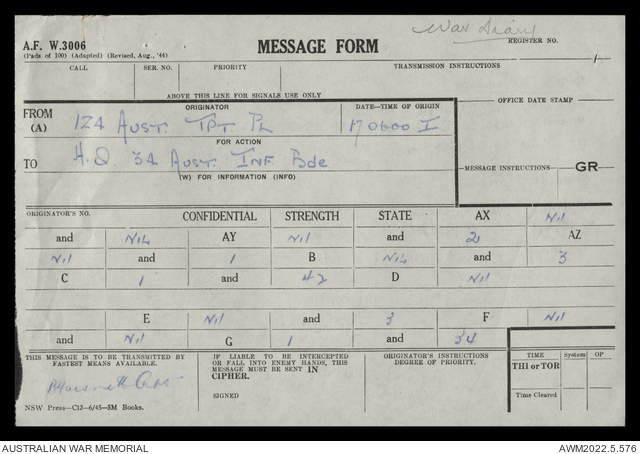 War Diary
A.F. W.3006
(Pads of 100) (Adapted) (Revised, Aug., '44)
MESSAGE FORM
REGISTER NO.
CALL SER. NO. PRIORITY TRANSMISSION INSTRUCTIONS
ABOVE THIS LINE FOR SIGNALS USE ONLY
FROM (A) ORIGINATOR DATE—TIME OF ORIGIN OFFICE DATE STAMP
124 Aust. Tpt Pl 170600 I
FOR ACTION
TO H.Q. 34 Aust. Inf Bde
(W) FOR INFORMATION (INFO) MESSAGE INSTRUCTIONS GR
ORIGINATOR'S NO. CONFIDENTIAL STRENGTH STATE AX Nil
and Nil AY Nil and 2 AZ
Nil and 1 B Nil and 3
C 1 and 42 D Nil
E Nil and 3 F Nil
and Nil G 1 and 34
THIS MESSAGE IS TO BE TRANSMITTED BY FASTEST MEANS AVAILABLE.
IF LIABLE TO BE INTERCEPTED OR FALL INTO ENEMY HANDS, THIS MESSAGE MUST BE SENT IN CIPHER.
SIGNED
ORIGINATOR'S INSTRUCTIONS DEGREE OF PRIORITY.
TIME System OP
THI or TOR
Time Cleared
NSW Press—C12—6/45—5M Books.
AUSTRALIAN WAR MEMORIAL AWM2022.5.576